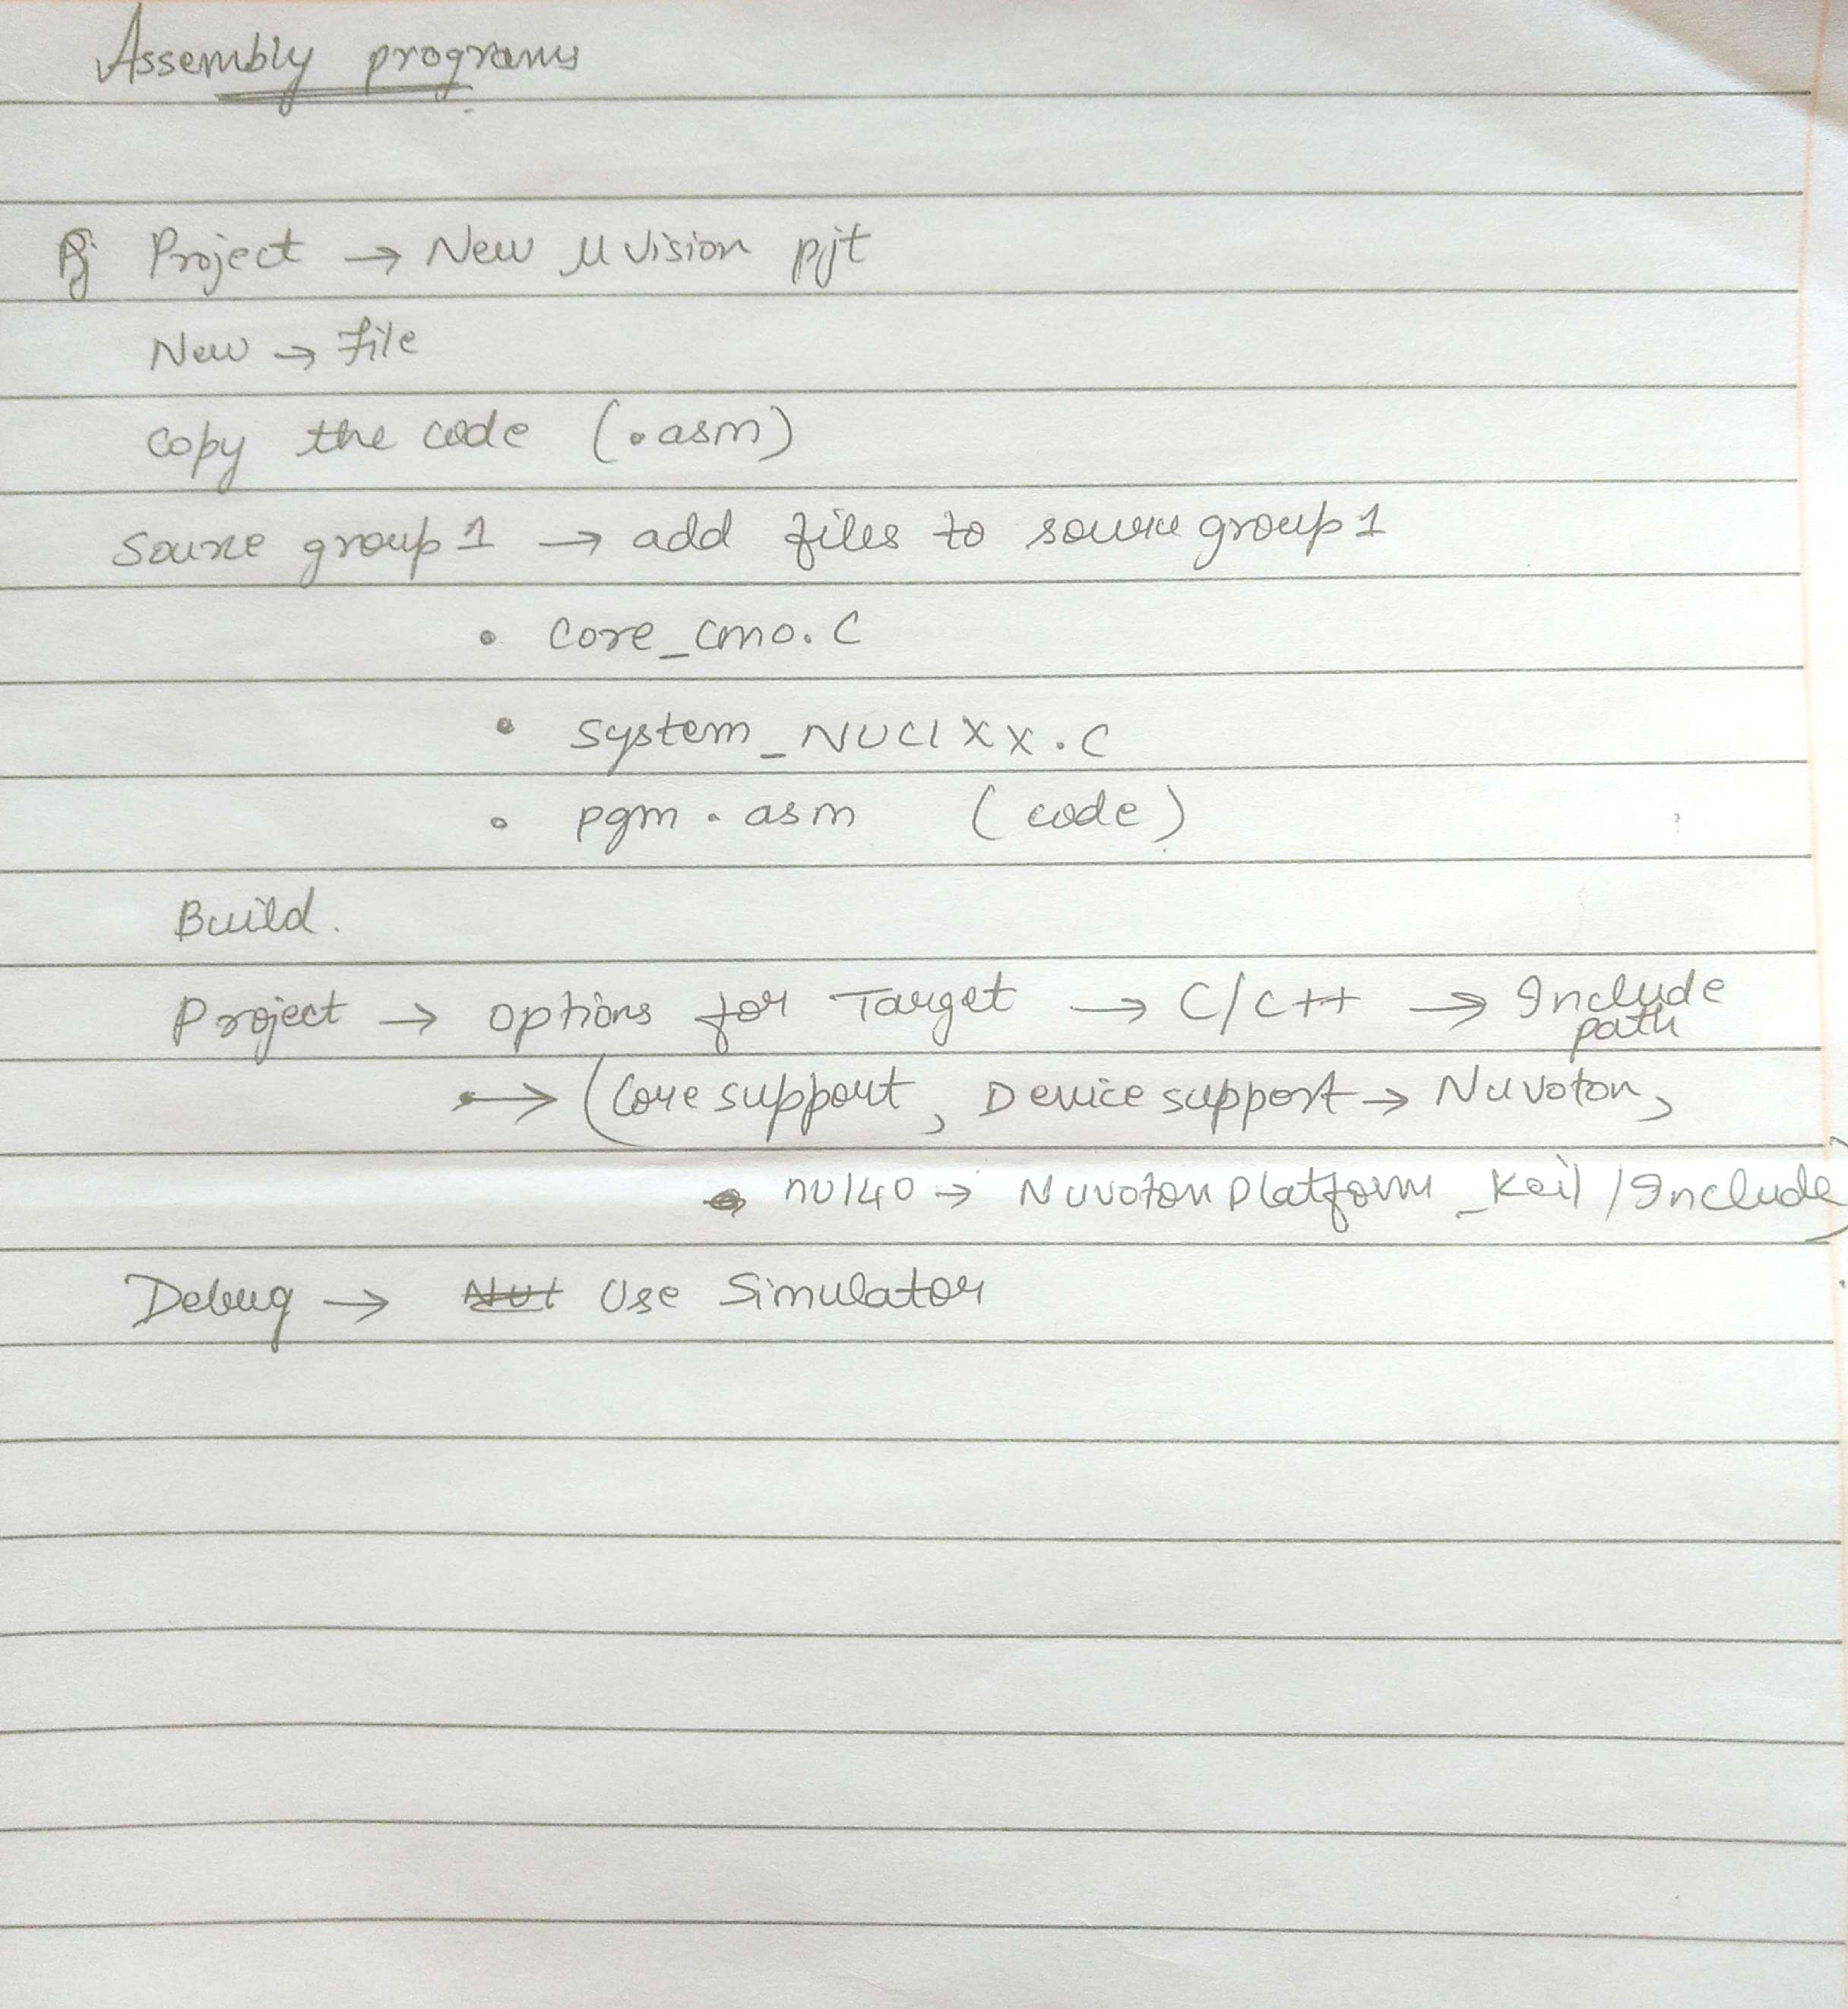 Assembly programs
Pj Project → New µ vision pjt
New → file
Copy the code (.asm)
Source group 1 → add files to source group 1
• Core_cm0.C
• System_NUC1XX.C
• pgm.asm (code)
Build.
Project → options for Target → C/C++ → Include path
→ (Core support, Device support → Nuvoton,
nu140 → Nuvoton Platform_Keil/Include)
Debug → Nut Use Simulator